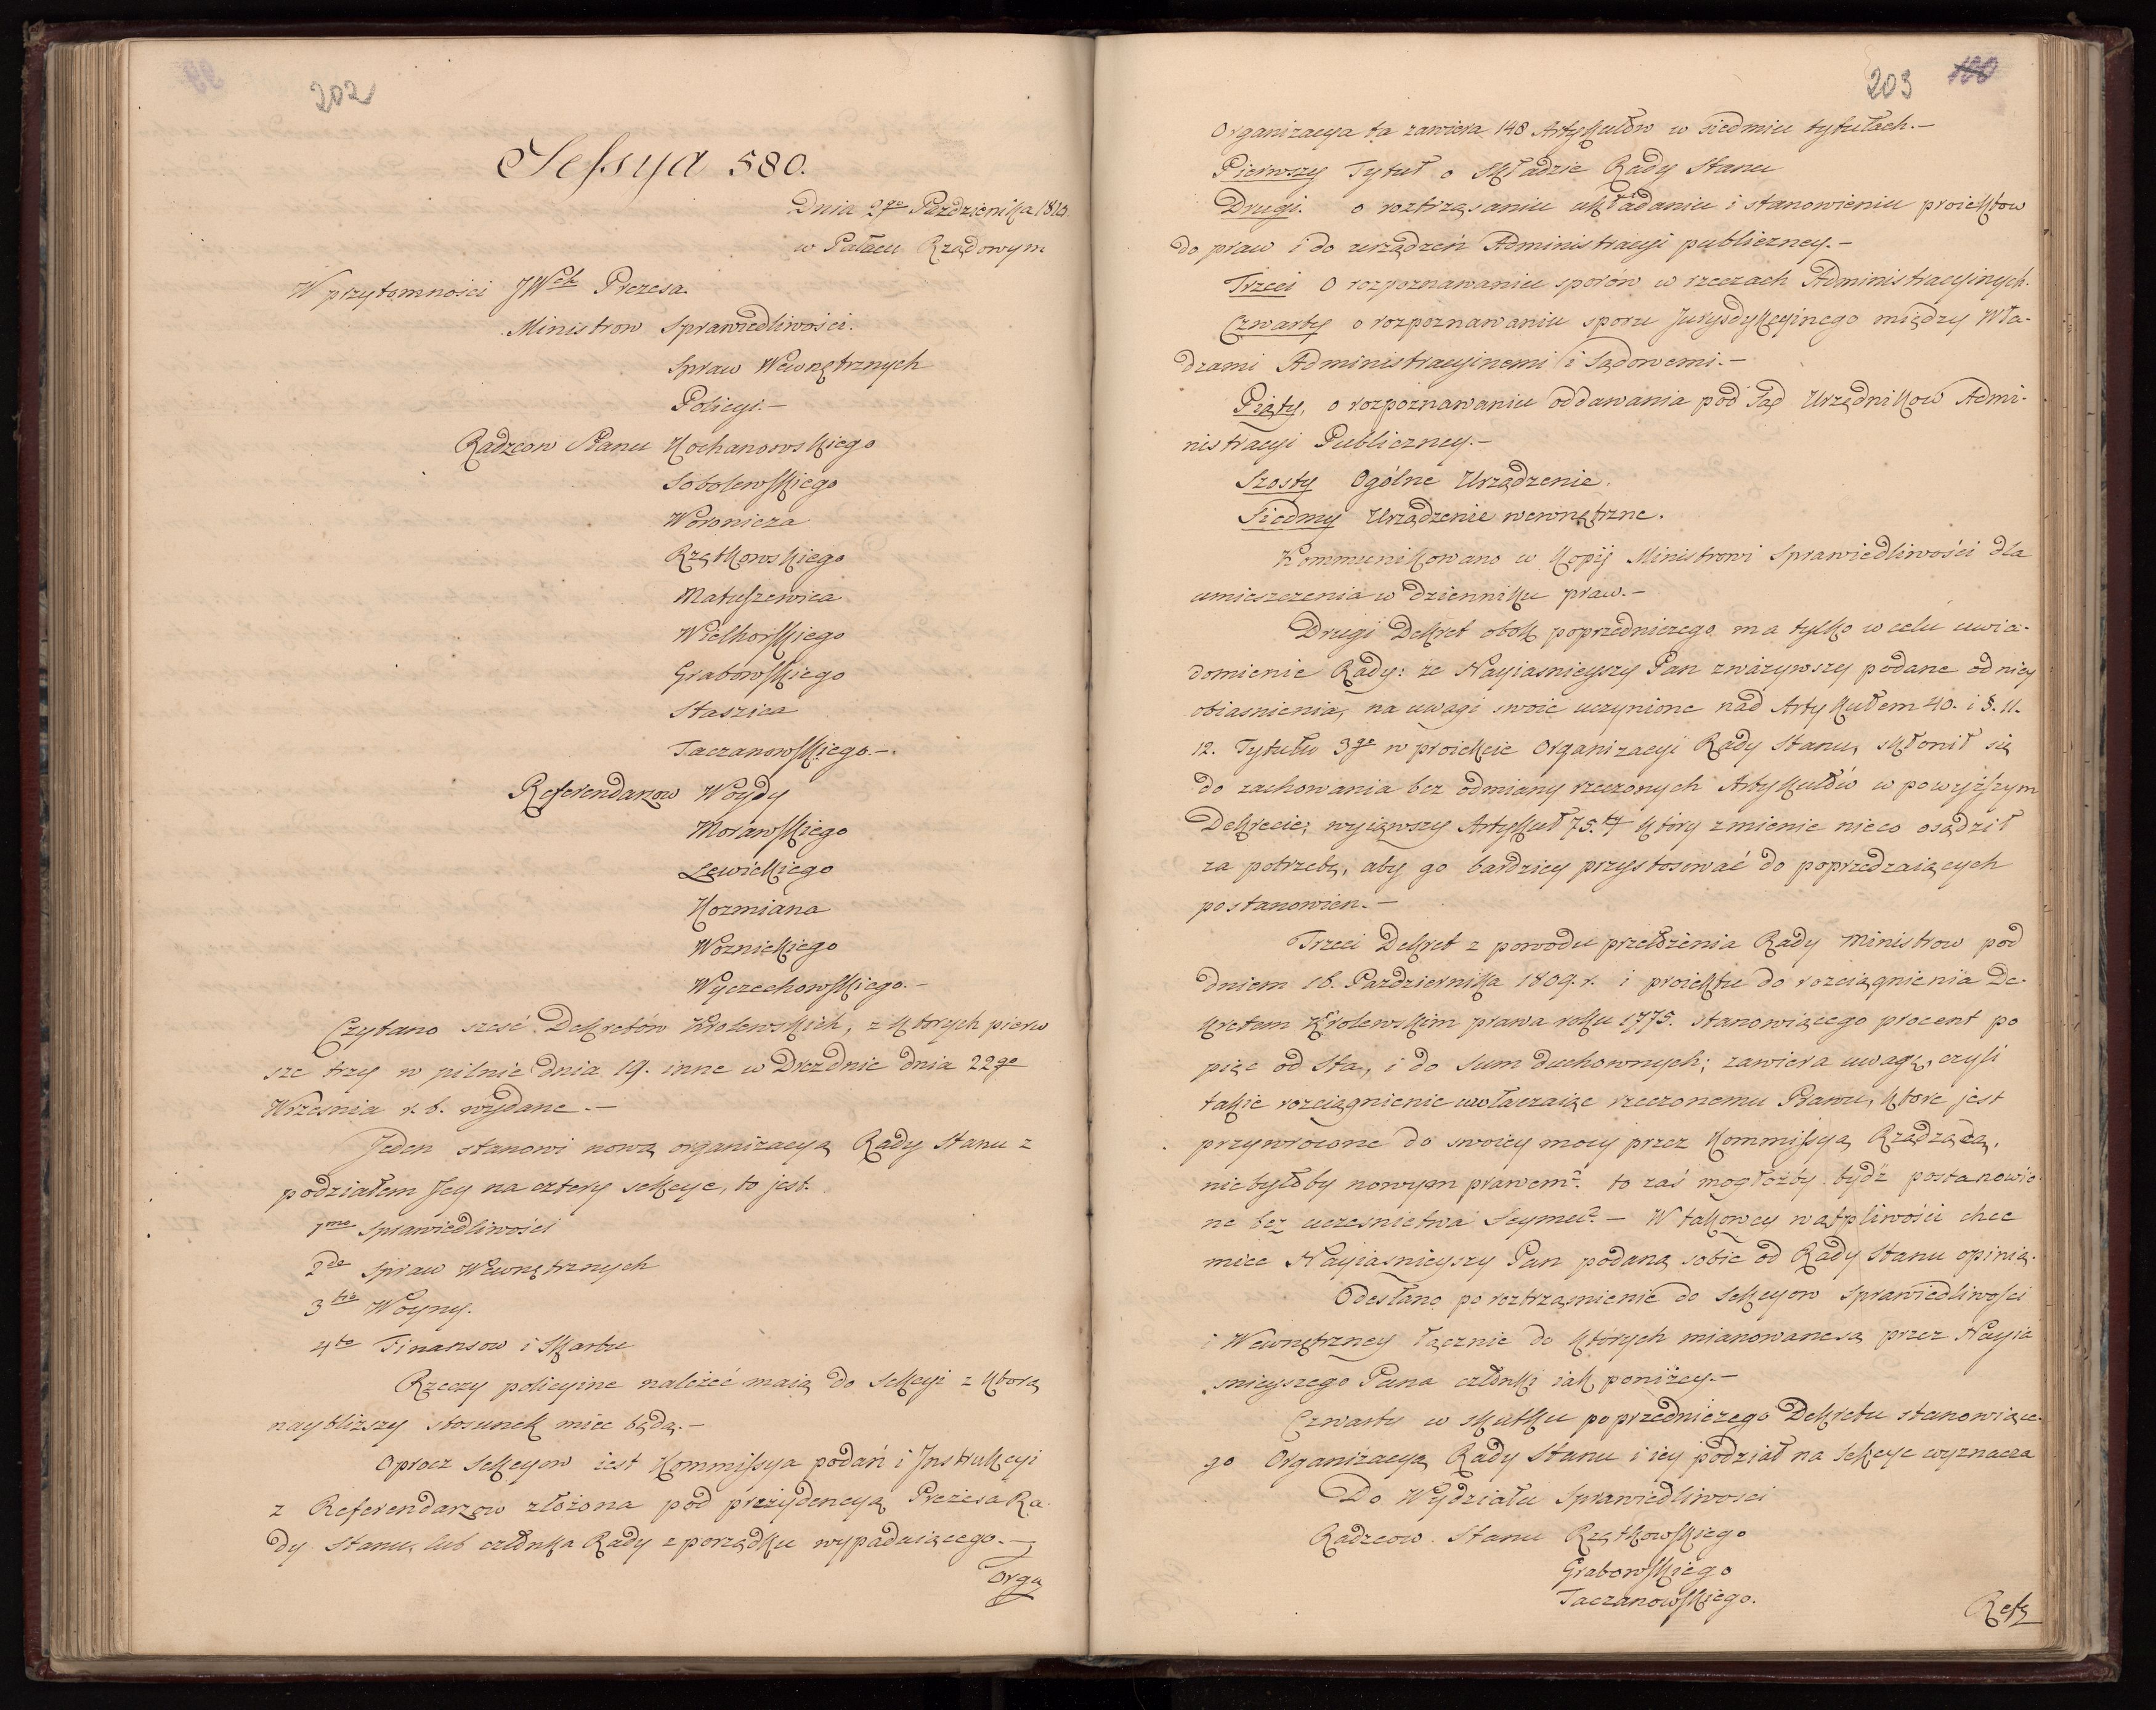 202
Sessya 580.
Dnia 2go Pazdziernika 1810.
w Pałacu Rządowym
W przytomności JWch Prezesa.
Ministrow Sprawiedliwości.
Spraw Wewnętrznych
Policyi.—
Radzcow Stanu Kochanowskiego
Sobolewskiego
Woronicza
Rzętkowskiego
Matuszewica
Wielhorskiego
Grabowskiego
Staszica
Taczanowskiego.—.
Referendarzow Woydy
Morawskiego
Lewickiego
Kozmiana
Woznickiego
Wyczechowskiego.—
Czytano sześć Dekretów Krolewskich, z ktorych pierw
sze trzy w pilnie dnia 19. inne w Dreznie dnia 22go
Wrzesnia r. b. wydane.—
Jeden stanowi nową organizacyą Rady Stanu z
podziałem Jey na cztery sekcye, to jest.
1mo Sprawiedliwości
2do Spraw Wewnętrznych
3tio Woyny.
4to Finansow i Skarbu
Rzeczy policyine należeć maią do Sekcyi z ktorą
naybliższy stosunek miec będą.—
Oprocz Sekcyow iest Kommissya podań i Jnstrukcyi
z Referendarzow złożona pod prezydencyą Prezesa Ra-
dy Stanu, lub członka Rady z porządku wypadaiącego.—
Orga
203 100
Organizacya ta zawiera 148 Artykułów w siedmiu tytułach.—
Pierwszy Tytuł o Składzie Rady Stanu
Drugi. o roztrząsaniu układaniu i stanowieniu proiektow
do praw i do urządzeń Administracyi publiczney.—
Trzeci O rozpoznawaniu sporów w rzeczach Administracyinych.
Czwarty o rozpoznawaniu sporu Jurysdykcyinego między Wła-
dzami Administracyinemi i Sądowemi.—
Piąty, o rozpoznawaniu oddawania pod Sąd Urzędnikow Admi-
nistracyi Publiczney.—
Szosty Ogólne Urządzenie.
Siedmy Urządzenie wewnętrzne.
Kommunikowano w Kopij Ministrowi Sprawiedliwości dla
umieszczenia w dzienniku praw.—
Drugi Dekret obok poprzedniczego ma tylko w celu uwia-
domienie Rady: że Nayiasnieyszy Pan zważywszy podane od niey
obiasnienia, na uwagi swoie uczynione nad Artykułem 40. i §. 11.
12. Tytułu 3go w proiekcie Organizacyi Rady Stanu, skłonił się
do zachowania bez odmiany rzeczonych Artykułów w powyższym
Dekrecie; wyiąwszy Artykuł 75.ty który zmienie nieco osądził
za potrzebę, aby go bardziey przystosować do poprzedzaiących
postanowien.—
Trzeci Dekret z powodu przełożenia Rady Ministrow pod
dniem 16. Pazdziernika 1809. r. i proiektu do rozciągnienia De-
kretem Krolewskim prawa roku 1775. stanowiącego procent po
pięc od Sta, i do Sum duchownych; zawiera uwagę, czyli
takie rozciągnienie uwłaczaiąc rzeczonemu Prawu, ktore jest
przywrocone do swoiey mocy przez Kommissyą Rządzącą,
niebyłoby nowym prawem? to zaś mogłożby bydź postanowio
ne bez uczesnictwa Seymu?— W takowey wątpliwości chce
miec Nayiasnieyszy Pan podaną sobie od Rady Stanu opinią.
Odesłano po roztrząsnienie do Sekcyow Sprawiedliwości
i Wewnętrzney łącznie do których mianowane są przez Nayia
snieyszego Pana członki iak poniżey.—
Czwarty w skutku poprzedniczego Dekretu stanowiące-
go Organizacyą Rady Stanu i iey podział na Sekcye wyznacza
Do Wydziału Sprawiedliwosci
Radzcow Stanu Rzętkowskiego
Grabowskiego
Taczanowskiego.
Refe